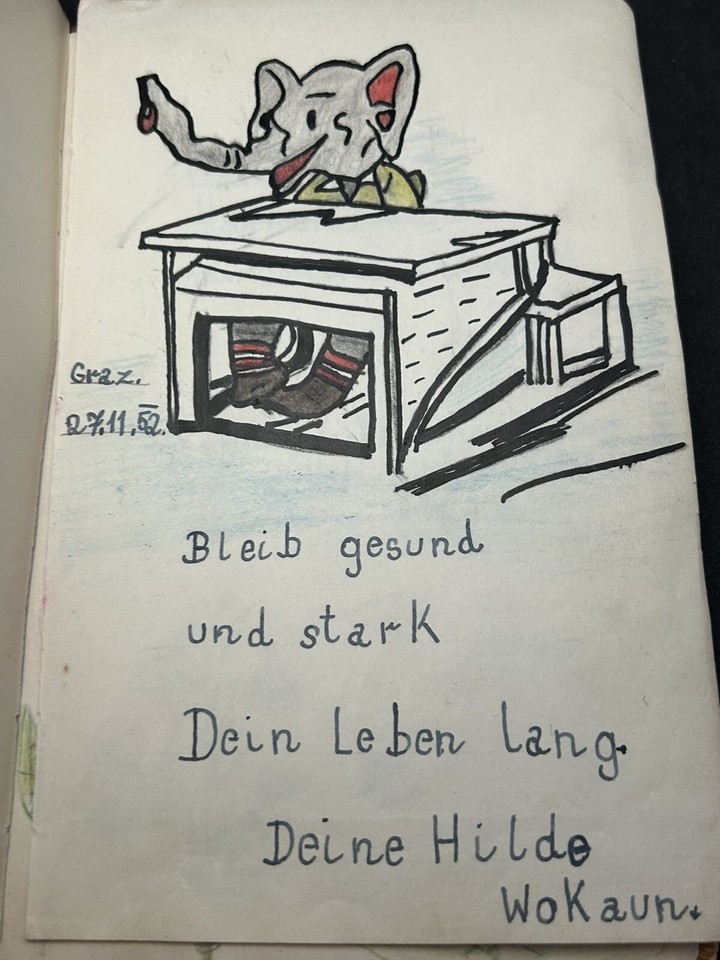 Graz.
27.11.52.
Bleib gesund
und stark
Dein Leben lang.
Deine Hilde
Wokaun.